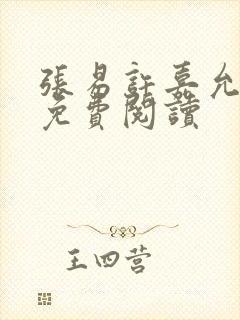 張易許嘉允
免費閱讀
王四营